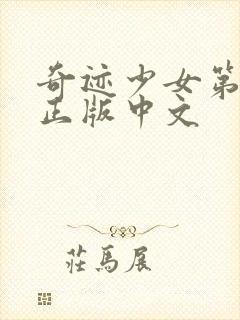 奇迹少女第
正版中文
莊馬展